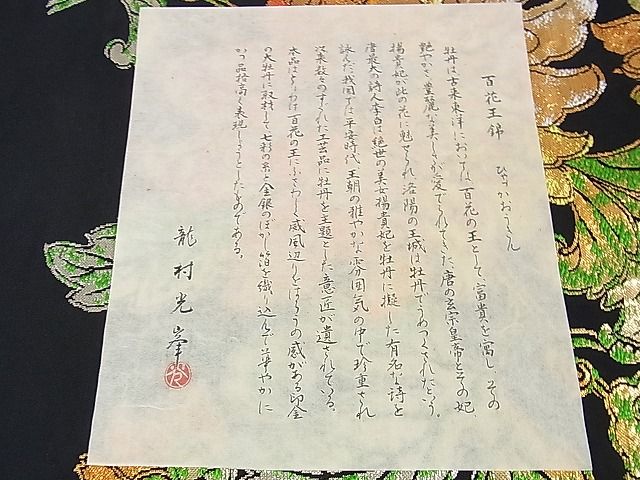 百花王錦　ひゃっかおうきん
牡丹は古来東洋においては百花の王として、富貴を寓し、その
艶やかさ、豊麗な美しさが愛でられてきた。唐の玄宗皇帝とその妃
楊貴妃が此の花に魅せられ洛陽の王城は牡丹でうめつくされたという。
唐最大の詩人李白は絶世の美女楊貴妃を牡丹に擬した有名な詩を
詠んだ。我国では平安時代、王朝の雅やかな雰囲気の中で珍重され
以来数々のすぐれた工芸品に牡丹を主題とした意匠が遺されている。
本品はまさに百花の王にふさわしく威風辺りをはらうの感がある印金
の大牡丹に取材して七彩の糸と金銀のぼかし箔を織り込んで華やかに
かつ品格高く表現しようとしたものである。
龍村光峯